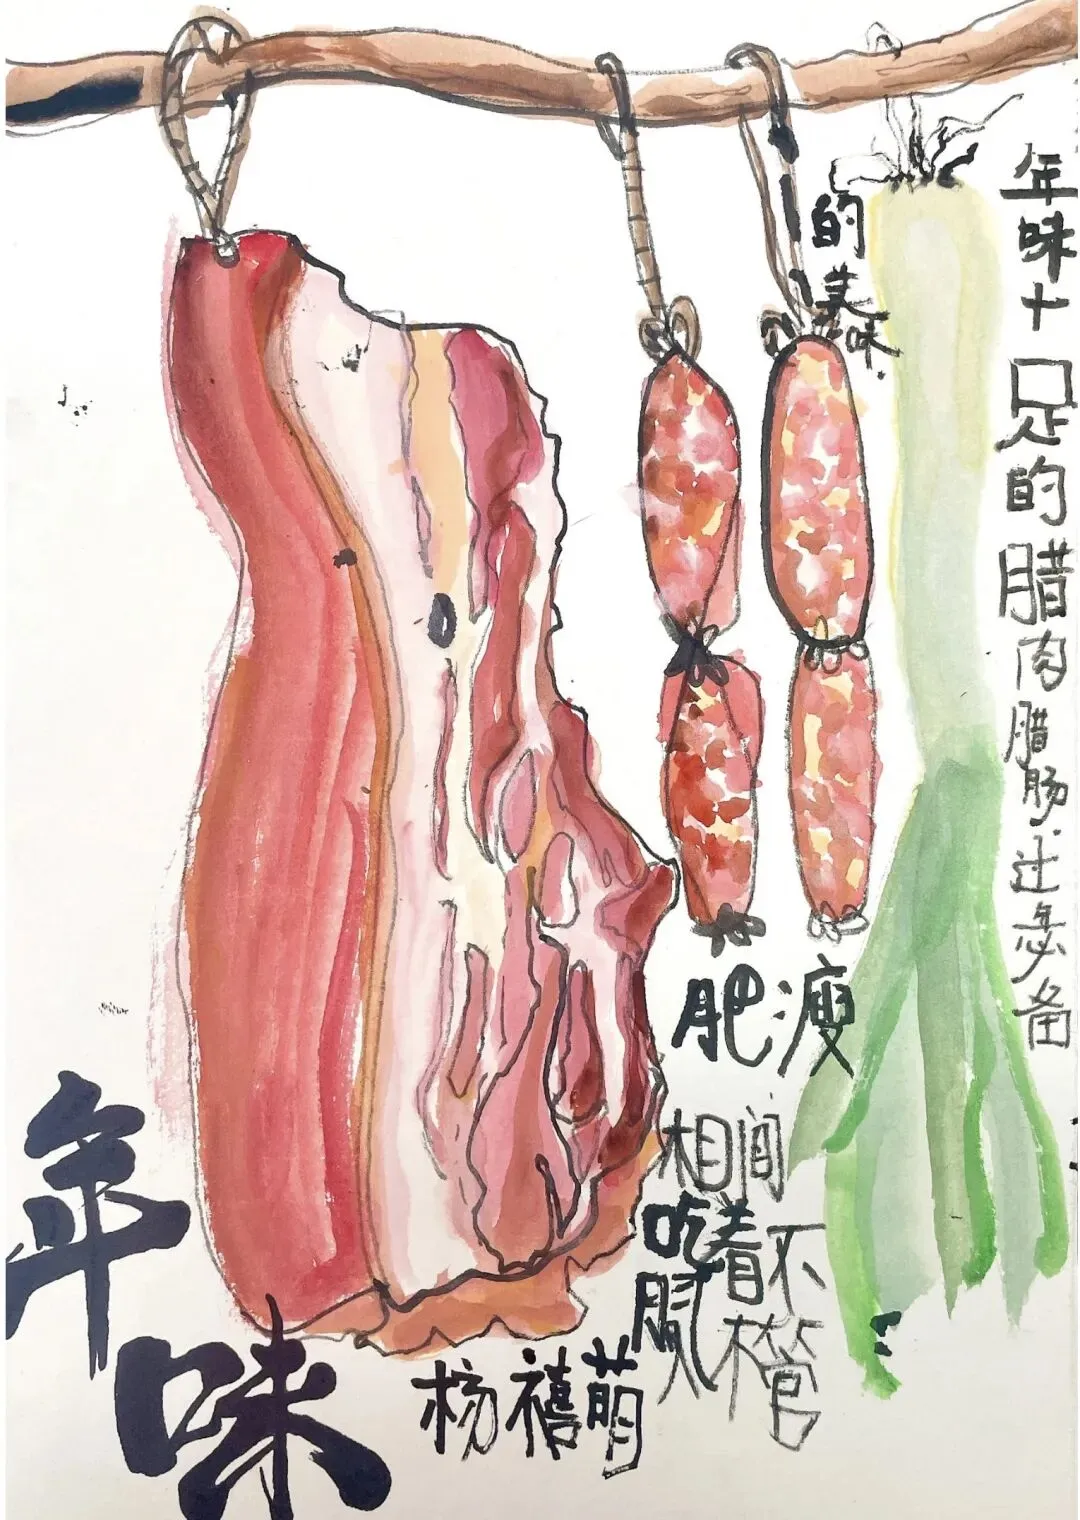 年味十足的腊肉腊肠过年必备
的美味
肥瘦
相间
吃着不
腻
年味
杨禧萌